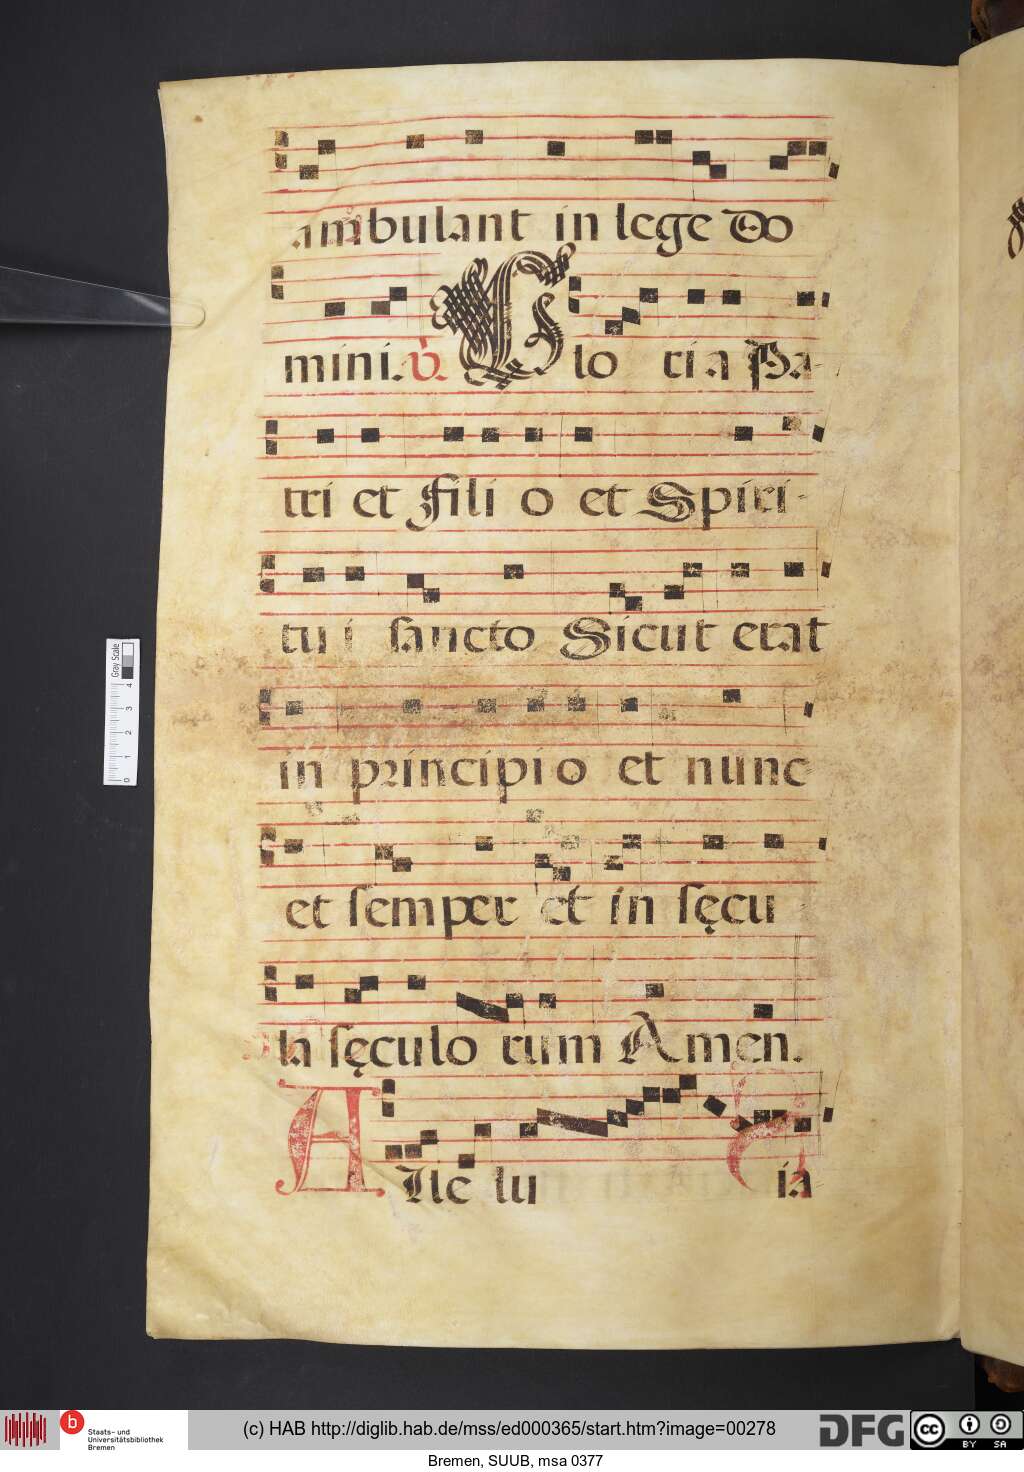 ambulant in lege Do
mini. V. Glo ri a Pa-
tri et Fili o et Spiri-
tu i sancto Sicut erat
in principio et nunc
et semper et in sęcu
la sęculo rum Amen.
A lle lu ia
Gray Scale
4 3 2 1 0
b Staats- und Universitätsbibliothek Bremen
(c) HAB http://diglib.hab.de/mss/ed000365/start.htm?image=00278
DFG
cc BY SA
Bremen, SUUB, msa 0377